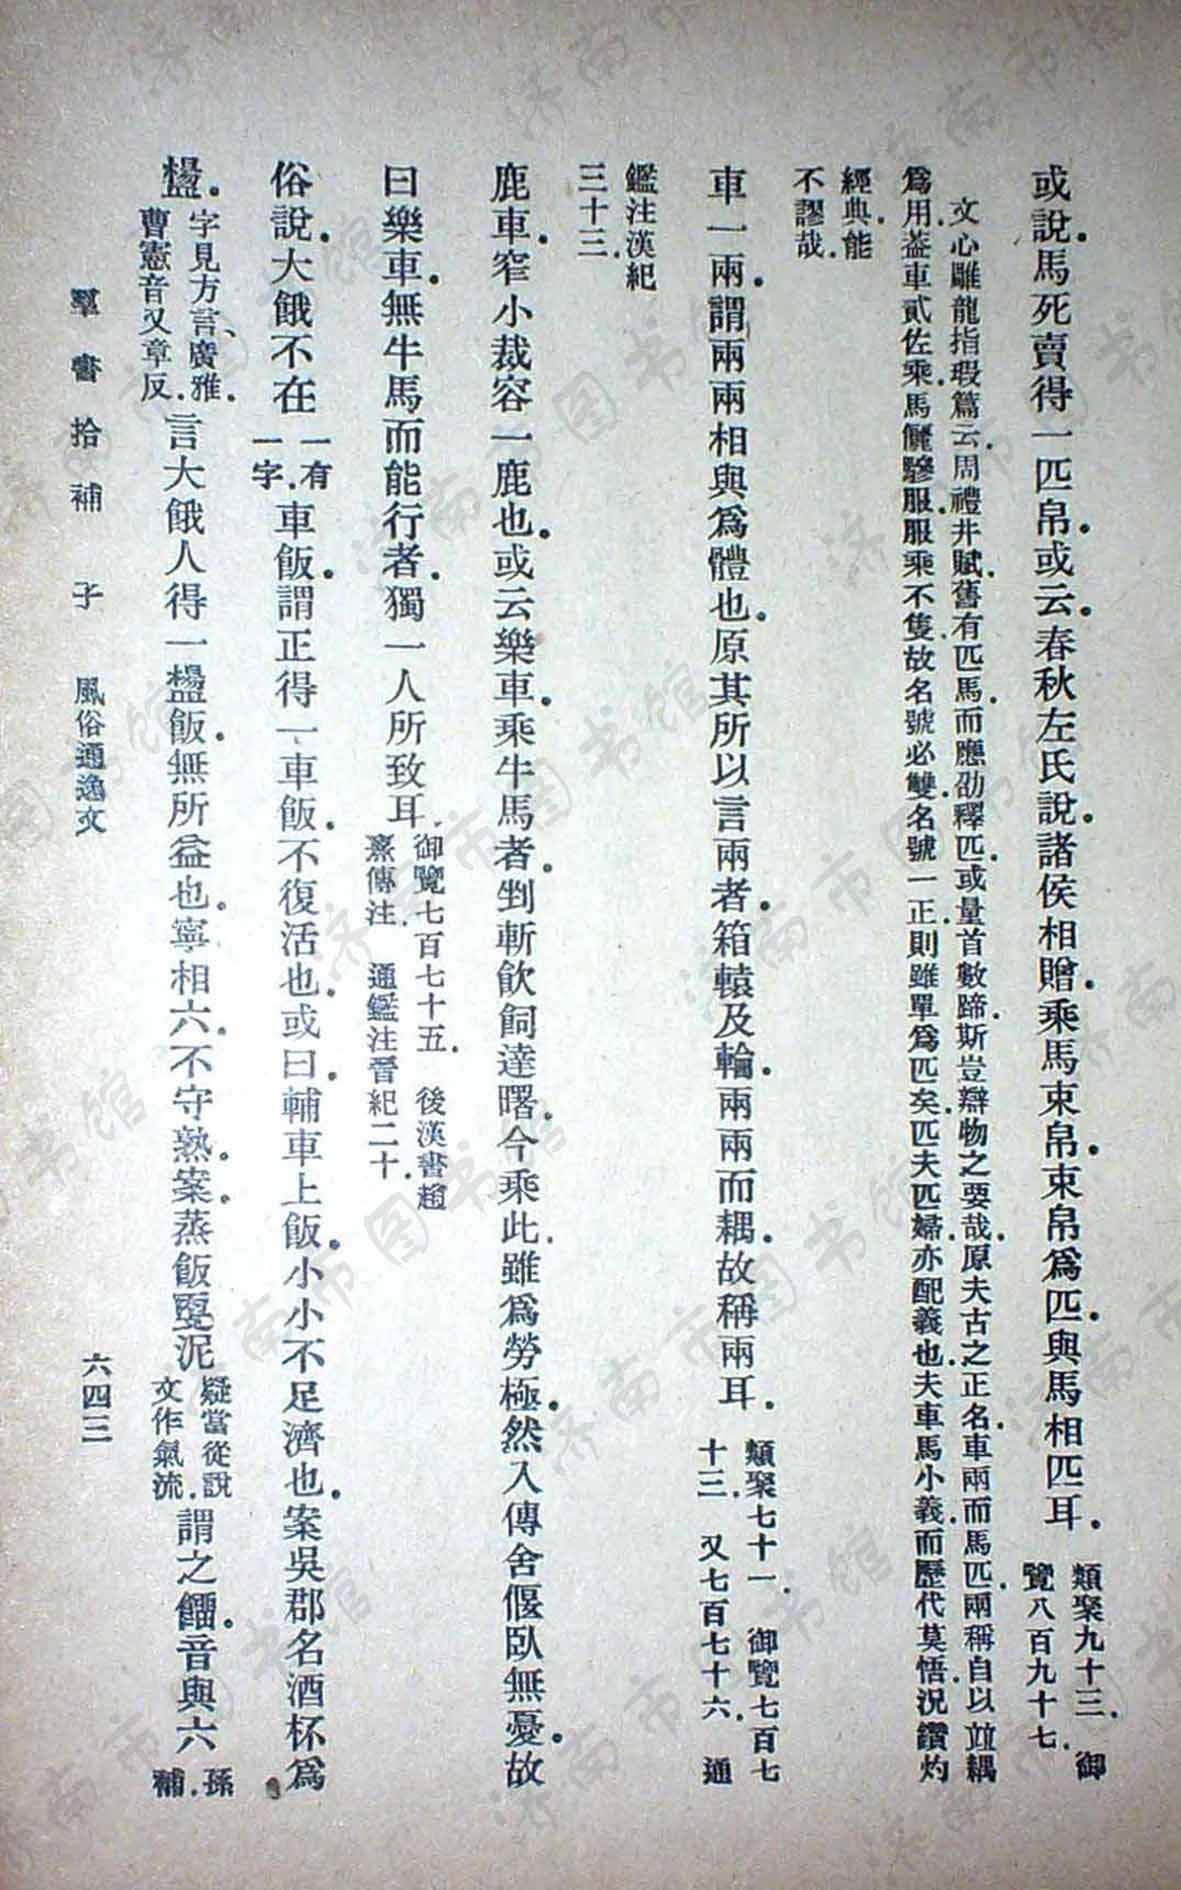 或說馬死賣得一匹帛或云春秋左氏說諸侯相贈乘馬束帛束帛爲匹與馬相匹耳
類聚九十三　御
覽八百九十七
文心雕龍指瑕篇云周禮井賦舊有匹馬而應劭釋匹或量首數蹄斯豈辯物之要哉原夫古之正名車兩而馬匹兩稱自以竝耦
爲用蓋車貳佐乘馬儷驂服服乘不隻故名號必雙名號一正則雖單爲匹矣匹夫匹婦亦配義也夫車馬小義而歷代莫悟況鑽灼
經典能
不謬哉
車一兩謂兩兩相與爲體也原其所以言兩者箱轅及輪兩兩而耦故稱兩耳
類聚七十一　御覽七百七
十三　又七百七十六　通
鑑注漢紀
三十三
鹿車窄小裁容一鹿也或云樂車乘牛馬者剉斬飲飼達曙今乘此雖爲勞極然入傳舍偃臥無憂故
曰樂車無牛馬而能行者獨一人所致耳
御覽七百七十五　後漢書趙
熹傳注　通鑑注晉紀二十
俗說大餓不在
一有
一字
車飯謂正得一車飯不復活也或曰輔車上飯小小不足濟也案吳郡名酒杯爲
䀋
字見方言廣雅
曹憲音又章反
言大餓人得一䀋飯無所益也寧相六不守熟案蒸飯更泥
疑當從說
文作氣流
謂之餾音與六
孫
補
羣書拾補　子　風俗通逸文
六四三